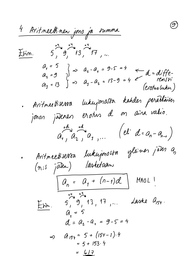 4 Aritmeettinen jono ja summa
Esim. 5, 9, 13, 17, ...
a₁ = 5
a₂ = 9 ⇒ a₂ - a₁ = 9 - 5 = 4
a₃ = 13 ⇒ a₃ - a₂ = 13 - 9 = 4
d = diffe-
renssi
(erotusluku)
• Aritmeettisessa lukujonossa kahden peräkkäisen
jonon jäsenen erotus d on aina vakio.
a₁, a₂, a₃, ...
• Aritmeettisessa lukujonossa yleinen jäsen aₙ
(n:s jäsen) lasketaan
MAOL!
Esim. 5, 9, 13, 17, ... Laske
a₁ = 5
d = a₂ - a₁ = 9 - 5 = 4
= 5 + 153·4
= 617